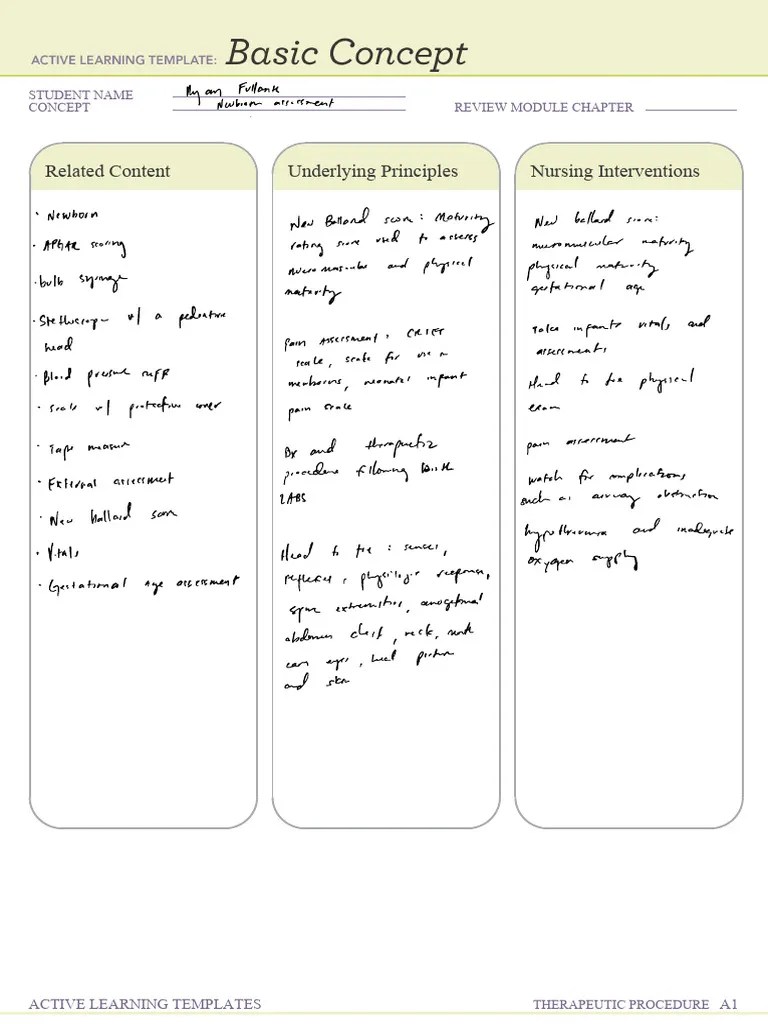 ACTIVE LEARNING TEMPLATE: Basic Concept
STUDENT NAME
CONCEPT Newborn assessment
REVIEW MODULE CHAPTER
Related Content
• Newborn
• APGAR scoring
• bulb syringe
• Stethoscope w/ a pediatric
head
• Blood pressure cuff
• scale w/ protective cover
• Tape measure
• External assessment
• New ballard
• Vitals
• Gestational age assessment
Underlying Principles
New Ballard score: Maturity
rating score used to assess
neuromuscular and physical
maturity
pain assessment: CRIES
scale, scale for use in
newborns, neonatal infant
pain scale
Dx and therapeutic
procedure following birth
LABS
Head to toe: senses,
reflexes, physiologic response,
spine extremities, anogenital
abdomen chest, neck,
ears eyes, head
and skin
Nursing Interventions
New ballard score:
neuromuscular maturity
physical maturity
gestational age
Take infants vitals, and
assessments
Head to toe physical
exam
pain assessment
watch for complications
such as airway obstruction
hypothermia and inadequate
oxygen supply
ACTIVE LEARNING TEMPLATES
THERAPEUTIC PROCEDURE A1